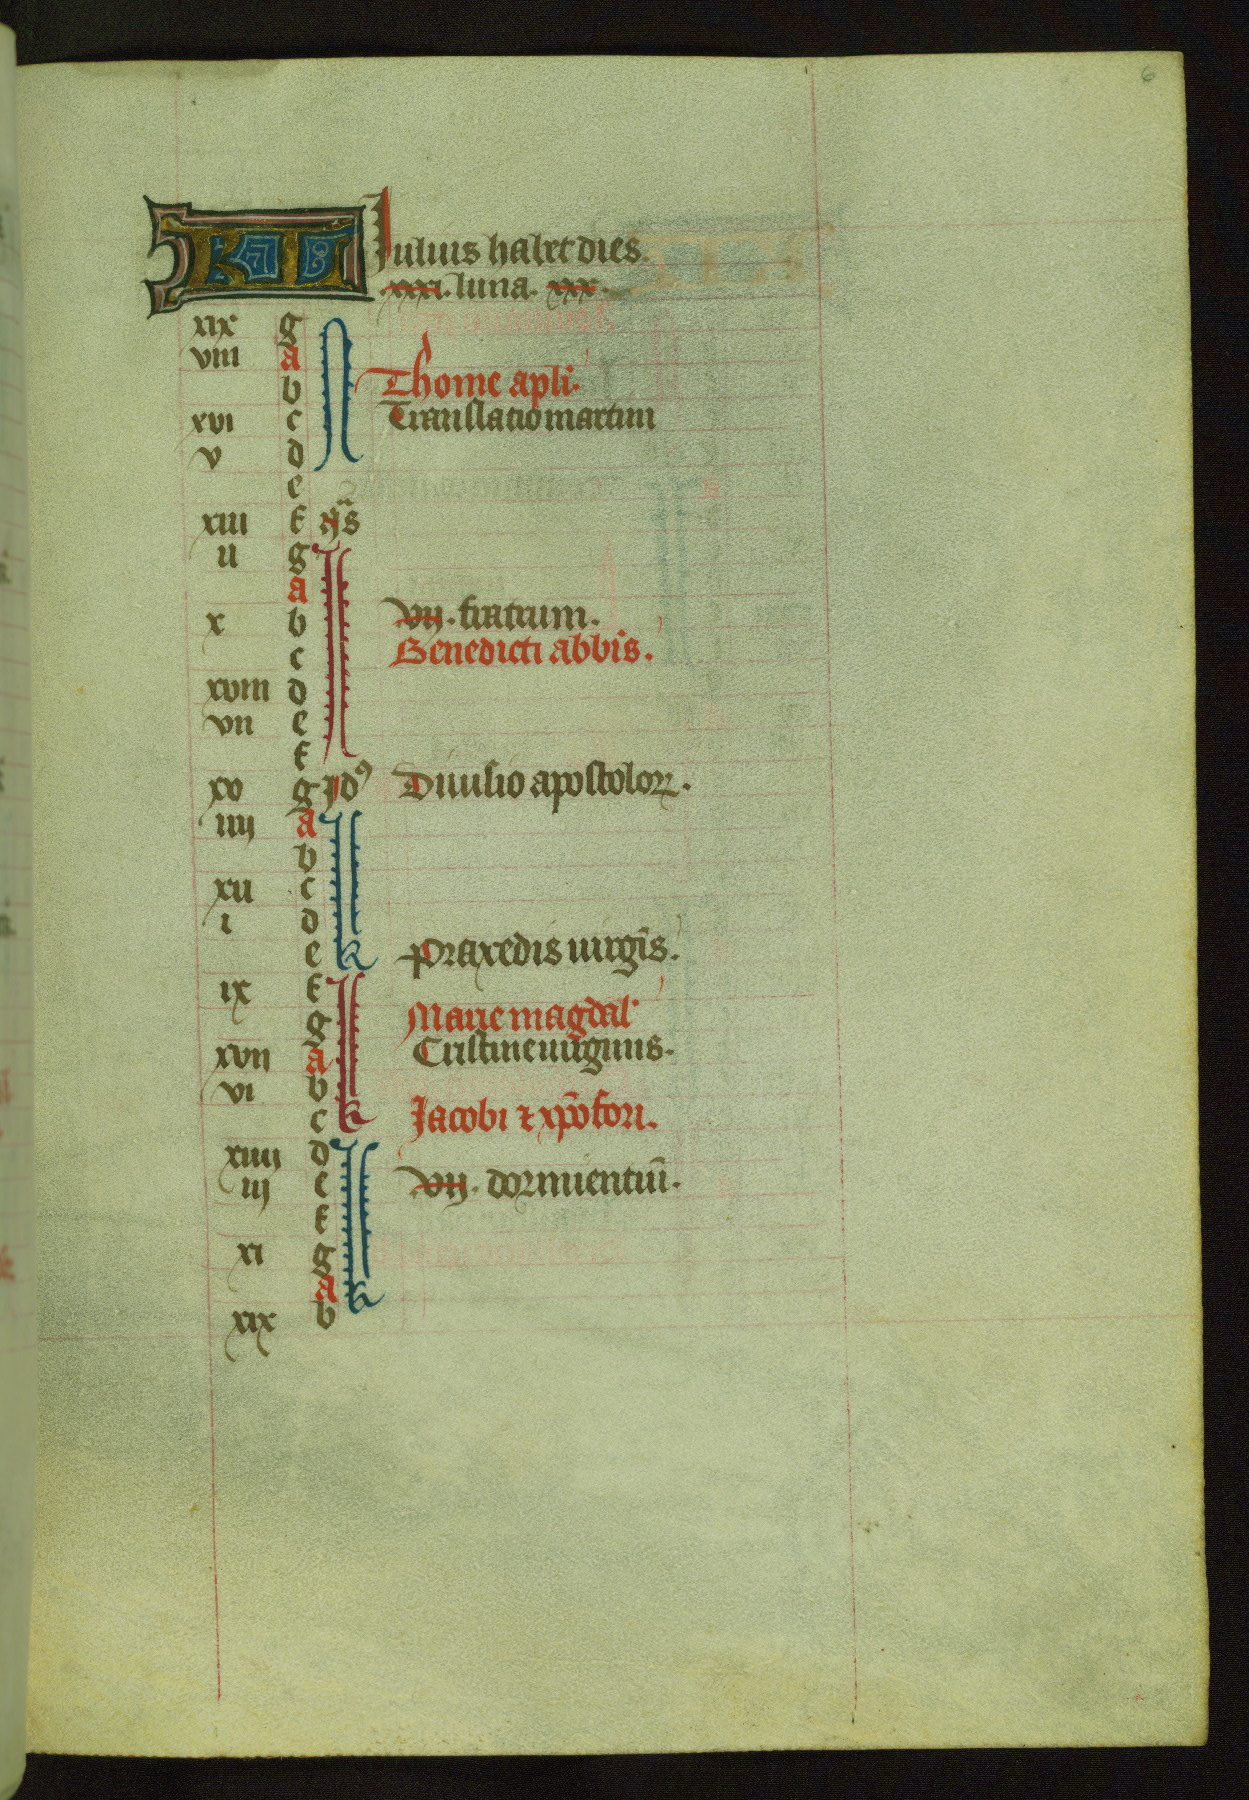 6
KL Iulius habet dies.
.xxxi. luna. xxx.
xix g N
viii a
b Thome apli.
xvi c Translatio martini
v d
e
xiii f Ns
ii g I
a
x b vij. fratrum.
c Benedicti abbis.
xviii d
vii e
f
xv g Jdꝰ Diuisio apostoloꝝ.
iiij a k
b
xii c
i d
e Praxedis uirgis.
ix f k
g Marie magdal
xvii a Cristine uirginis.
vi b
c Jacobi ⁊ xpōfori.
xiiij d k
iij e vij. dormientiū.
f
xi g
a
xix b